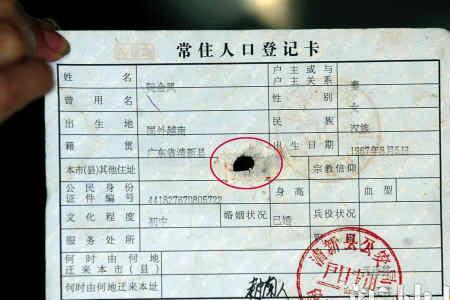 常住人口登记卡
姓名 阮金凤 户主或与户主关系 妻
曾用名 性别 女
出生地 国外越南 民族 汉族
籍贯 广东省清新县 出生日期 1967年8月5日
本市(县)其他住址 宗教信仰
公民身份证件编号 441827670805722 身高 血型
文化程度 初中 婚姻状况 已婚 兵役状况
服务处所
何时由何地迁来本市(县)
何时由何地迁来本址
清新县公安局
户口专用